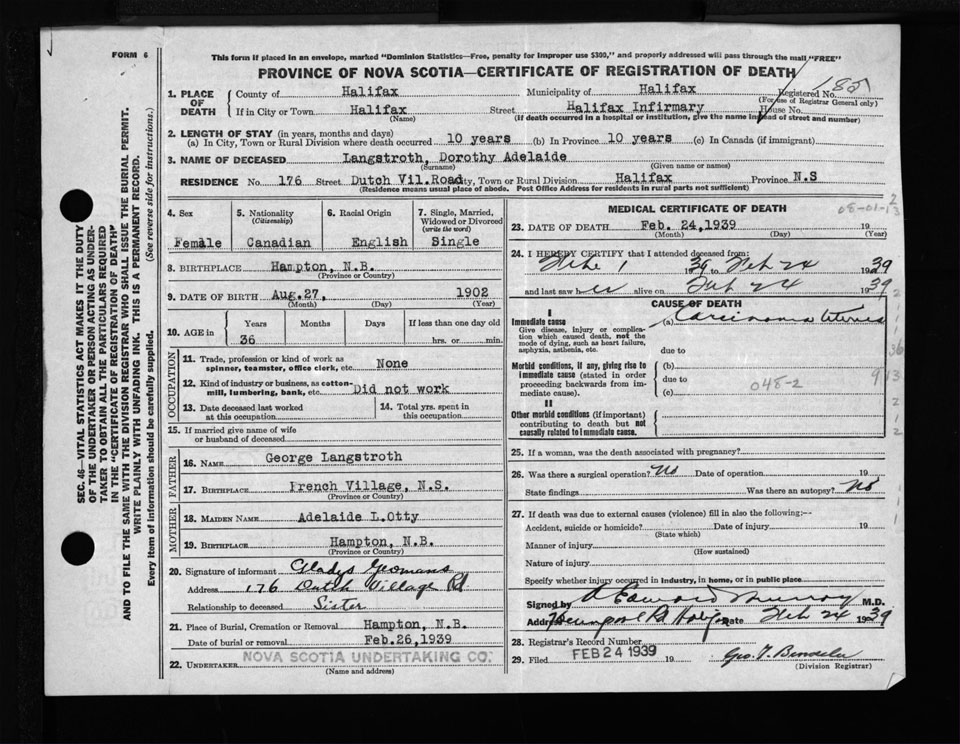 FORM 6
This form if placed in an envelope, marked "Dominion Statistics—Free, penalty for improper use $300," and properly addressed will pass through the mail "FREE"
PROVINCE OF NOVA SCOTIA—CERTIFICATE OF REGISTRATION OF DEATH
1. PLACE OF DEATH County of Halifax Municipality of Halifax Registered No.
(For use of Registrar General only)
If in City or Town Halifax Street Halifax Infirmary House No.
(Name) (If death occurred in a hospital or institution, give the name instead of street and number)
2. LENGTH OF STAY (in years, months and days)
(a) In City, Town or Rural Division where death occurred 10 years (b) In Province 10 years (c) In Canada (if immigrant)
3. NAME OF DECEASED Langstroth, Dorothy Adelaide
(Surname) (Given name or names)
RESIDENCE No. 176 Street Dutch Vil.Road City, Town or Rural Division Halifax Province N.S
(Residence means usual place of abode. Post Office Address for residents in rural parts not sufficient)
4. Sex Female
5. Nationality (Citizenship) Canadian
6. Racial Origin English
7. Single, Married, Widowed or Divorced (write the word) Single
8. BIRTHPLACE Hampton, N.B.
(Province or Country)
9. DATE OF BIRTH Aug.27, 1902
(Month) (Day) (Year)
10. AGE in Years Months Days If less than one day old
36 hrs. or min.
OCCUPATION
11. Trade, profession or kind of work as spinner, teamster, office clerk, etc. None
12. Kind of industry or business, as cotton-mill, lumbering, bank, etc. Did not work
13. Date deceased last worked at this occupation
14. Total yrs. spent in this occupation
15. If married give name of wife or husband of deceased
FATHER
16. NAME George Langstroth
17. BIRTHPLACE French Village, N.S.
(Province or Country)
MOTHER
18. MAIDEN NAME Adelaide L.Otty
19. BIRTHPLACE Hampton, N.B.
(Province or Country)
20. Signature of informant Gladys Yeomans
Address 176 Dutch Village Rd
Relationship to deceased Sister
21. Place of Burial, Cremation or Removal Hampton, N.B.
Date of burial or removal Feb.26,1939
22. UNDERTAKER NOVA SCOTIA UNDERTAKING CO.
(Name and address)
MEDICAL CERTIFICATE OF DEATH
08-01-
23. DATE OF DEATH Feb. 24,1939 19
(Month) (Day) (Year)
24. I HEREBY CERTIFY that I attended deceased from:
Feb 1 1939 to Feb 24 1939
and last saw her alive on Feb 24 1939
CAUSE OF DEATH
I
Immediate cause (a) Carcinoma Uterus
Give disease, injury or complication which caused death, not the mode of dying, such as heart failure, asphyxia, asthenia, etc.
due to
Morbid conditions, if any, giving rise to immediate cause (stated in order proceeding backwards from immediate cause).
(b)
due to
(c) 048-2
II
Other morbid conditions (if important) contributing to death but not causally related to immediate cause.
25. If a woman, was the death associated with pregnancy?
26. Was there a surgical operation? No Date of operation 19
State findings Was there an autopsy? No
27. If death was due to external causes (violence) fill in also the following:--
Accident, suicide or homicide? Date of injury 19
(State which)
Manner of injury
(How sustained)
Nature of injury
Specify whether injury occurred in industry, in home, or in public place
Signed by Edward Murray M.D.
Address Date Feb 24 1939
28. Registrar's Record Number
29. Filed FEB 24 1939 19
(Division Registrar)
SEC. 46—VITAL STATISTICS ACT MAKES IT THE DUTY
OF THE UNDERTAKER OR PERSON ACTING AS UNDER-
TAKER TO OBTAIN ALL THE PARTICULARS REQUIRED
IN THE "CERTIFICATE OF REGISTRATION OF DEATH"
AND TO FILE THE SAME WITH THE DIVISION REGISTRAR WHO SHALL ISSUE THE BURIAL PERMIT.
WRITE PLAINLY WITH UNFADING INK. THIS IS A PERMANENT RECORD.
Every item of information should be carefully supplied. (See reverse side for instructions.)